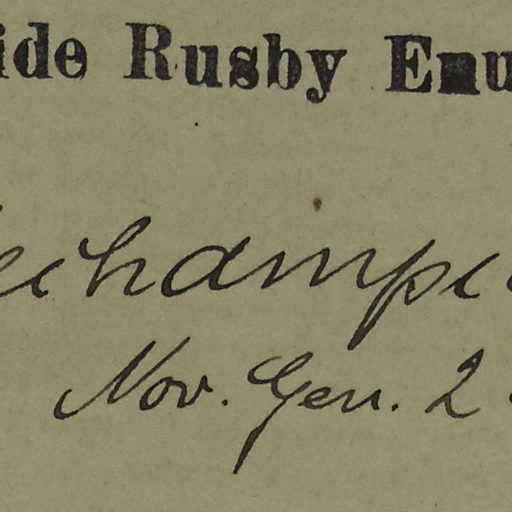 ide Rusby Enu
echampe
Nov. Gen. 2